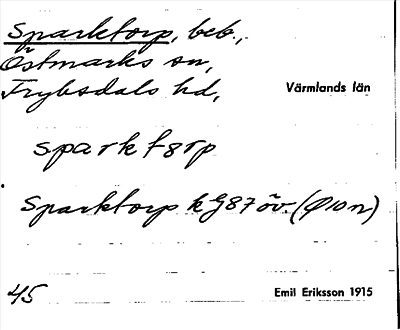 Sparktorp, beb.,
Östmarks sn,
Fryksdals hd,
Värmlands län
sparktörp
Sparktorp kG87öv. (Ø10n)
45
Emil Eriksson 1915